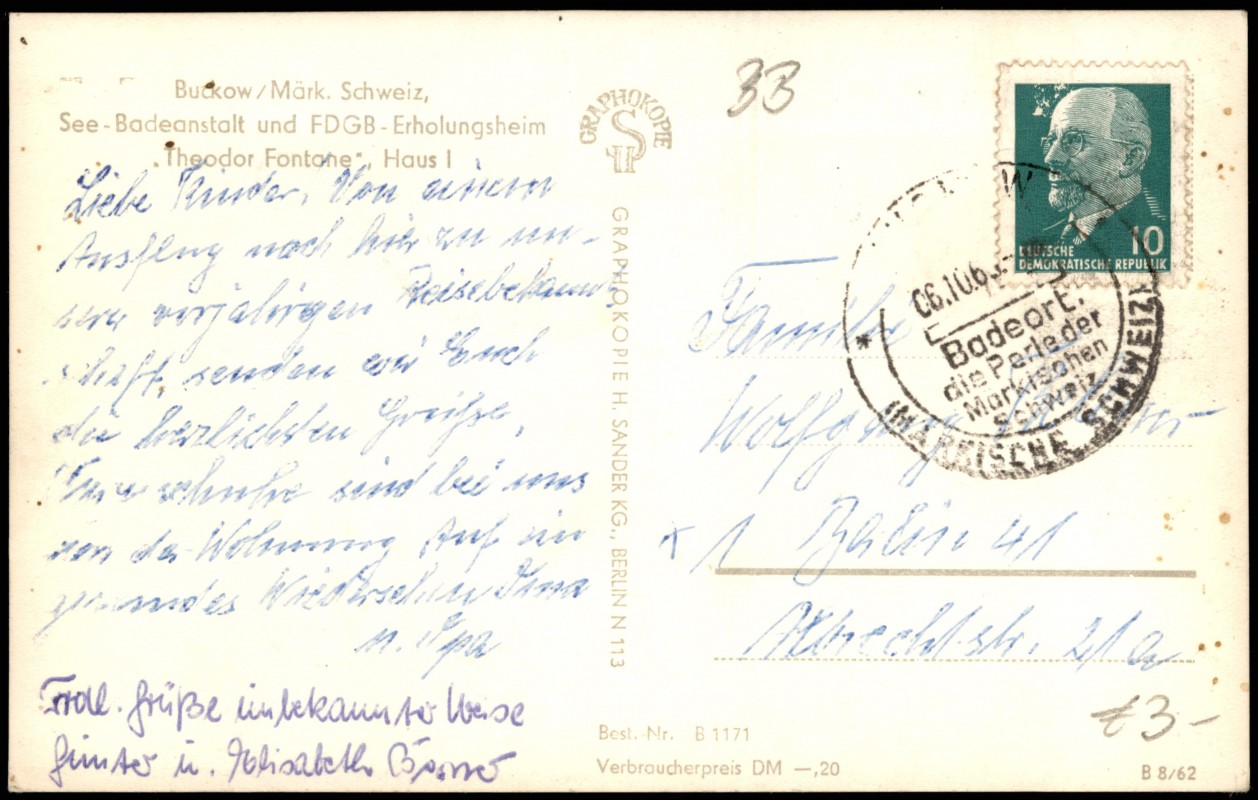 Buckow/Märk. Schweiz,
See-Badeanstalt und FDGB-Erholungsheim
„Theodor Fontane", Haus I
Liebe Kinder, Von einem
Ausflug nach hier zu un-
serer vorjährigen Reisebekann-
schaft, senden wir Euch
die herzlichsten Grüße,
sind bei uns
von der Wohnung Auf ein
gesundes Wiedersehen Oma
u. Opa
Frdl. Grüße unbekannter Weise
Günter u. Elisabeth
GRAPHOKOPIE
SH
GRAPHOKOPIE H. SANDER KG., BERLIN N 113
33
DEUTSCHE
DEMOKRATISCHE REPUBLIK
10
06.10.6
Badeort.
die Perle der
Märkischen
Schweiz
* (MÄRKISCHE SCHWEIZ)
Familie
Wolfgang
1 Berlin 41
Albrechtstr. 21a
Best.-Nr. B 1171
Verbraucherpreis DM —,20
€3-
B 8/62